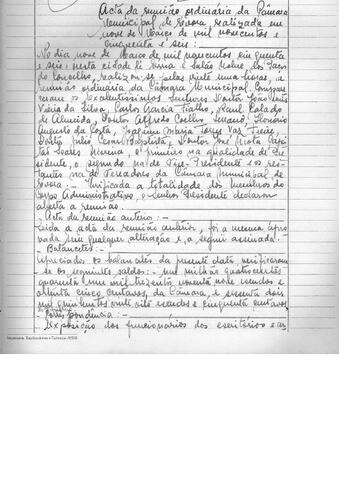 Acta da reunião ordinária da Câmara
Municipal de Evora realizada em
nove de Março de mil novecentos e
cinquenta e seis:
No dia nove de Março de mil novecentos e cinquenta
e seis, nesta cidade de Evora e Salas Nobre, dos Paços
do Concelho, realizou-se pelas vinte e uma horas, a
reunião ordinária da Câmara Municipal. Compare
ceram os Excelentissimos Senhores Doutor João Luis
Vieira da Silva, Carlos Garcia Fialho, Raul Calado
de Almeida, Doutor Alfredo Coelho, Honório
Augusto da Costa, Joaquim Maria Torres Vaz Freire,
Doutor Julio Cesar Baptista, Doutor José
Soares Moreno, o primeiro na qualidade de Pre
sidente, o segundo na de Vice-Presidente e os res
tantes na de Vereadores da Câmara Municipal de
Evora. - Verificada a totalidade dos membros do
Corpo Administrativo, o Senhor Presidente declarou
aberta a reunião. -
- Acta da reunião anterior: -
Lida a acta da reunião anterior, foi a mesma apro
vada sem qualquer alteração e, a seguir assinada. -
- Balancetes: -
Apreciados os balancetes da presente data verificaram
-se os seguintes saldos: - um milhão quatrocentos
quarenta e um mil trezentos noventa e nove escudos e
oitenta cinco centavos, da Câmara, e sessenta dois
mil quinhentos oitenta e oito escudos e cinquenta centavos
- Correspondência: -
- Exposição dos funcionários dos escritórios e as